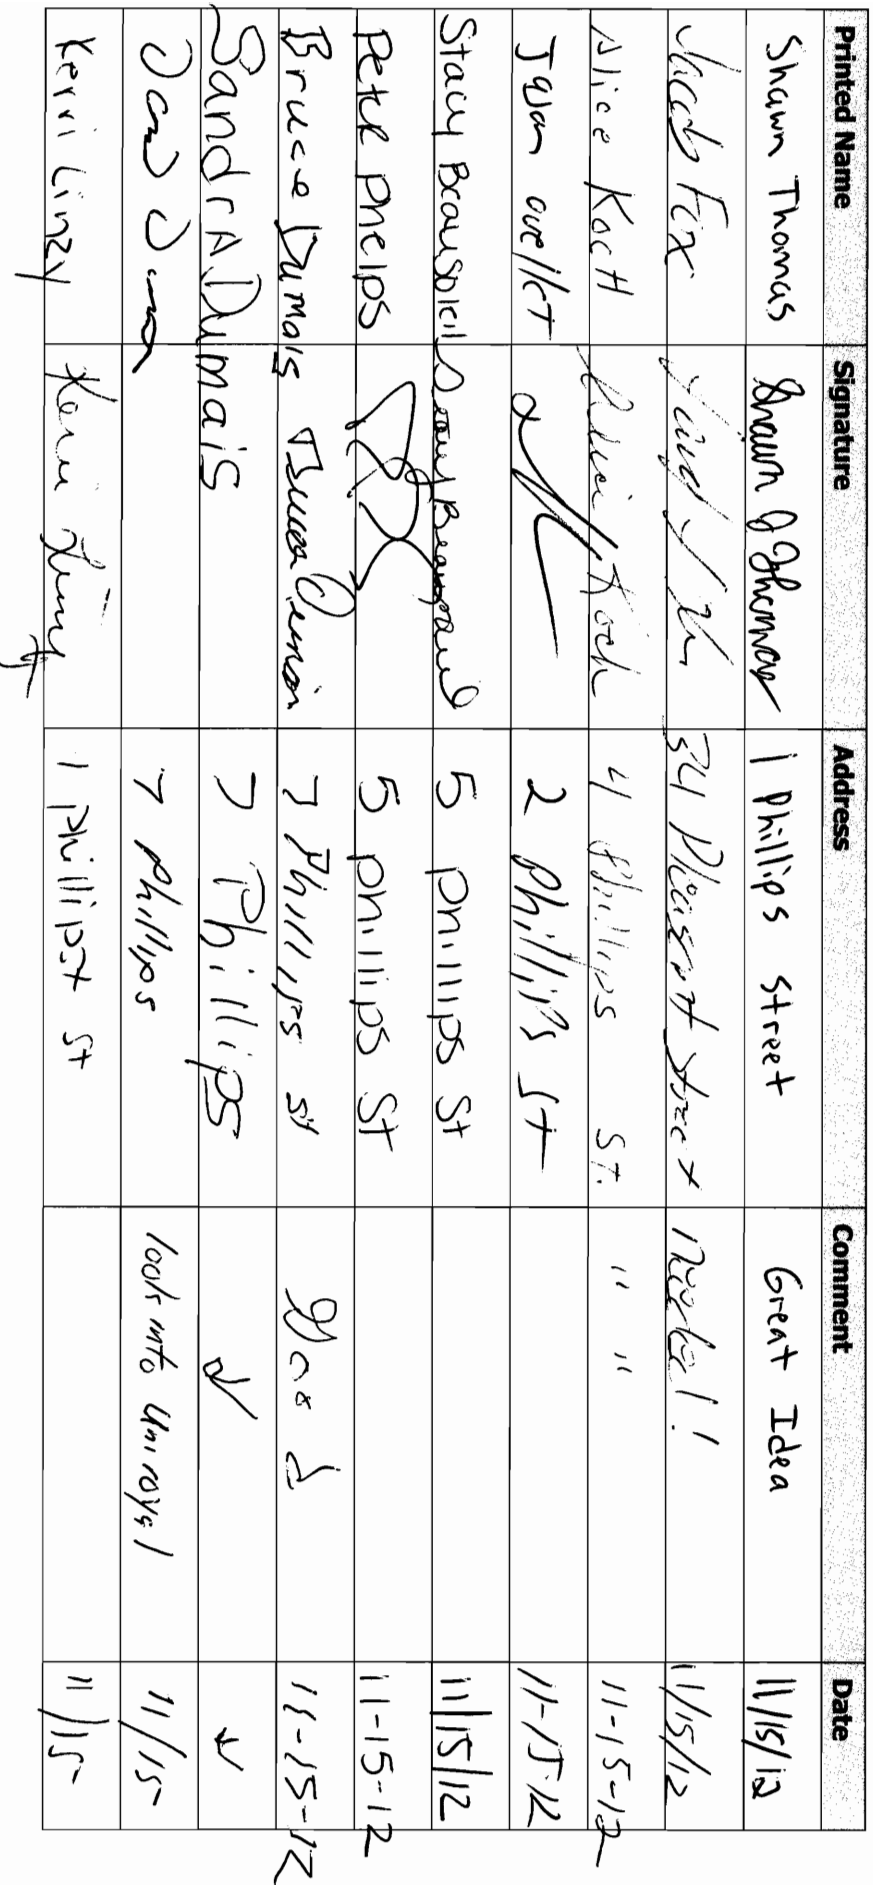 Printed Name Signature Address Comment Date
Shawn Thomas Shawn J Thomas 1 Phillips Street Great Idea 11/15/12
Jacob Fox 34 Pleasant Street 11/15/12
Alice Koch Alice Koch 4 Phillips St. " " 11-15-12
Juan ouellet 2 Phillips St 11-15-12
Stacy Beausoleil Stacy Beausoleil 5 Phillips St 11/15/12
Peter Phelps 5 phillips St 11-15-12
Bruce Dumais Bruce Dumais 7 Phillips st 11-15-12
SandrA Dumais 7 Phillips ↓ ↓
7 Phillips look into Uniroyal 11/15
Kerri Linzy Kerri Linzy 1 phillipst st 11/15